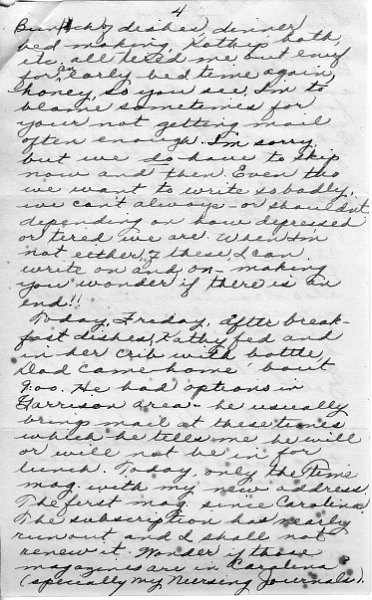 4
Bunch of dishes, dinner,
bed making, Kathy's bath,
etc., all tired me, but only
for an early bed time again,
honey, so you see, I'm to
blame sometimes for
your not getting mail
often enough. I'm sorry,
but we do have to skip
now and then. Even tho
we want to write so badly,
we can't always - or shouldn't
depending on how depressed
or tired we are. When I'm
not either of these, I can
write on and on - making
you wonder if there is an
end!!
Today, Friday, after break-
fast dishes, Kathy fed and
in her crib with bottle,
Dad came home 'bout
9:00. He had options in
Garrison area - he usually
brings mail at these times
which he tells me he will
or will not be in for
lunch. Today, only the Time
mag. with my new address.
The first mag. since Carolina.
The subscription has nearly
run out and I shall not
renew it. Wonder if those
magazines are in Carolina
(specially my Nursing Journals).